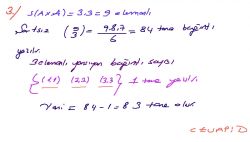 3) s(A×A) = 3.3 = 9 elemanlı
(9 3) = 9.8.7 / 6 = 84 tane bağıntı
yazılır.
3 elemanlı yansıyan bağıntı sayısı
{(1,1) (2,2) (3,3)} 1 tane yazılır
84 - 1 = 83 tane olur
CEVAP: D